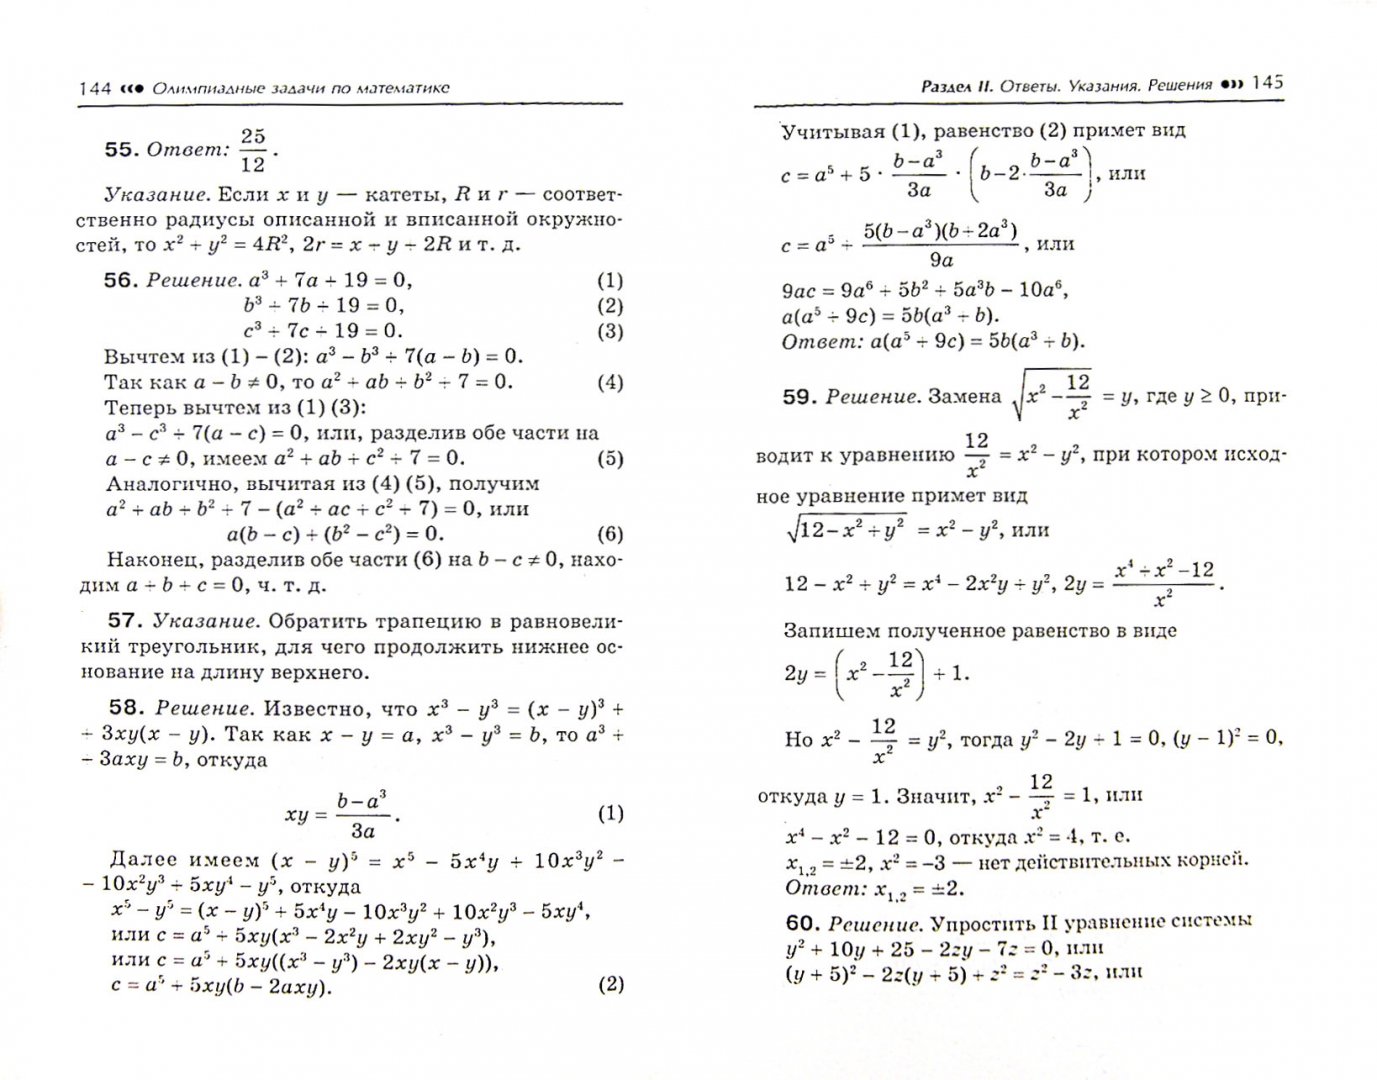 144 ««• Олимпиадные задачи по математике
55. Ответ: 25/12.
Указание. Если x и y — катеты, R и r — соответ-
ственно радиусы описанной и вписанной окружно-
стей, то x² + y² = 4R², 2r = x + y − 2R и т. д.
56. Решение. a³ + 7a + 19 = 0, (1)
b³ + 7b + 19 = 0, (2)
c³ + 7c + 19 = 0. (3)
Вычтем из (1) – (2): a³ − b³ + 7(a − b) = 0.
Так как a − b ≠ 0, то a² + ab + b² + 7 = 0. (4)
Теперь вычтем из (1) (3):
a³ − c³ + 7(a − c) = 0, или, разделив обе части на
a − c ≠ 0, имеем a² + ab + c² + 7 = 0. (5)
Аналогично, вычитая из (4) (5), получим
a² + ab + b² + 7 − (a² + ac + c² + 7) = 0, или
a(b − c) + (b² − c²) = 0. (6)
Наконец, разделив обе части (6) на b − c ≠ 0, нахо-
дим a + b + c = 0, ч. т. д.
57. Указание. Обратить трапецию в равновели-
кий треугольник, для чего продолжить нижнее ос-
нование на длину верхнего.
58. Решение. Известно, что x³ − y³ = (x − y)³ +
+ 3xy(x − y). Так как x − y = a, x³ − y³ = b, то a³ +
+ 3axy = b, откуда
xy = (b−a³)/3a. (1)
Далее имеем (x − y)⁵ = x⁵ − 5x⁴y + 10x³y² −
− 10x²y³ + 5xy⁴ − y⁵, откуда
x⁵ − y⁵ = (x − y)⁵ + 5x⁴y − 10x³y² + 10x²y³ − 5xy⁴,
или c = a⁵ + 5xy(x³ − 2x²y + 2xy² − y³),
или c = a⁵ + 5xy((x³ − y³) − 2xy(x − y)),
c = a⁵ + 5xy(b − 2axy). (2)
Раздел II. Ответы. Указания. Решения •»» 145
Учитывая (1), равенство (2) примет вид
c = a⁵ + 5 · (b−a³)/3a · (b−2·(b−a³)/3a), или
c = a⁵ + 5(b−a³)(b+2a³)/9a, или
9ac = 9a⁶ + 5b² + 5a³b − 10a⁶,
a(a⁵ + 9c) = 5b(a³ + b).
Ответ: a(a⁵ + 9c) = 5b(a³ + b).
59. Решение. Замена √(x²−12/x²) = y, где y ≥ 0, при-
водит к уравнению 12/x² = x² − y², при котором исход-
ное уравнение примет вид
√(12−x²+y²) = x² − y², или
12 − x² + y² = x⁴ − 2x²y + y², 2y = (x⁴+x²−12)/x².
Запишем полученное равенство в виде
2y = (x²−12/x²) + 1.
Но x² − 12/x² = y², тогда y² − 2y + 1 = 0, (y − 1)² = 0,
откуда y = 1. Значит, x² − 12/x² = 1, или
x⁴ − x² − 12 = 0, откуда x² = 4, т. е.
x₁,₂ = ±2, x² = −3 — нет действительных корней.
Ответ: x₁,₂ = ±2.
60. Решение. Упростить II уравнение системы
y² + 10y + 25 − 2zy − 7z = 0, или
(y + 5)² − 2z(y + 5) + z² = z² − 3z, или